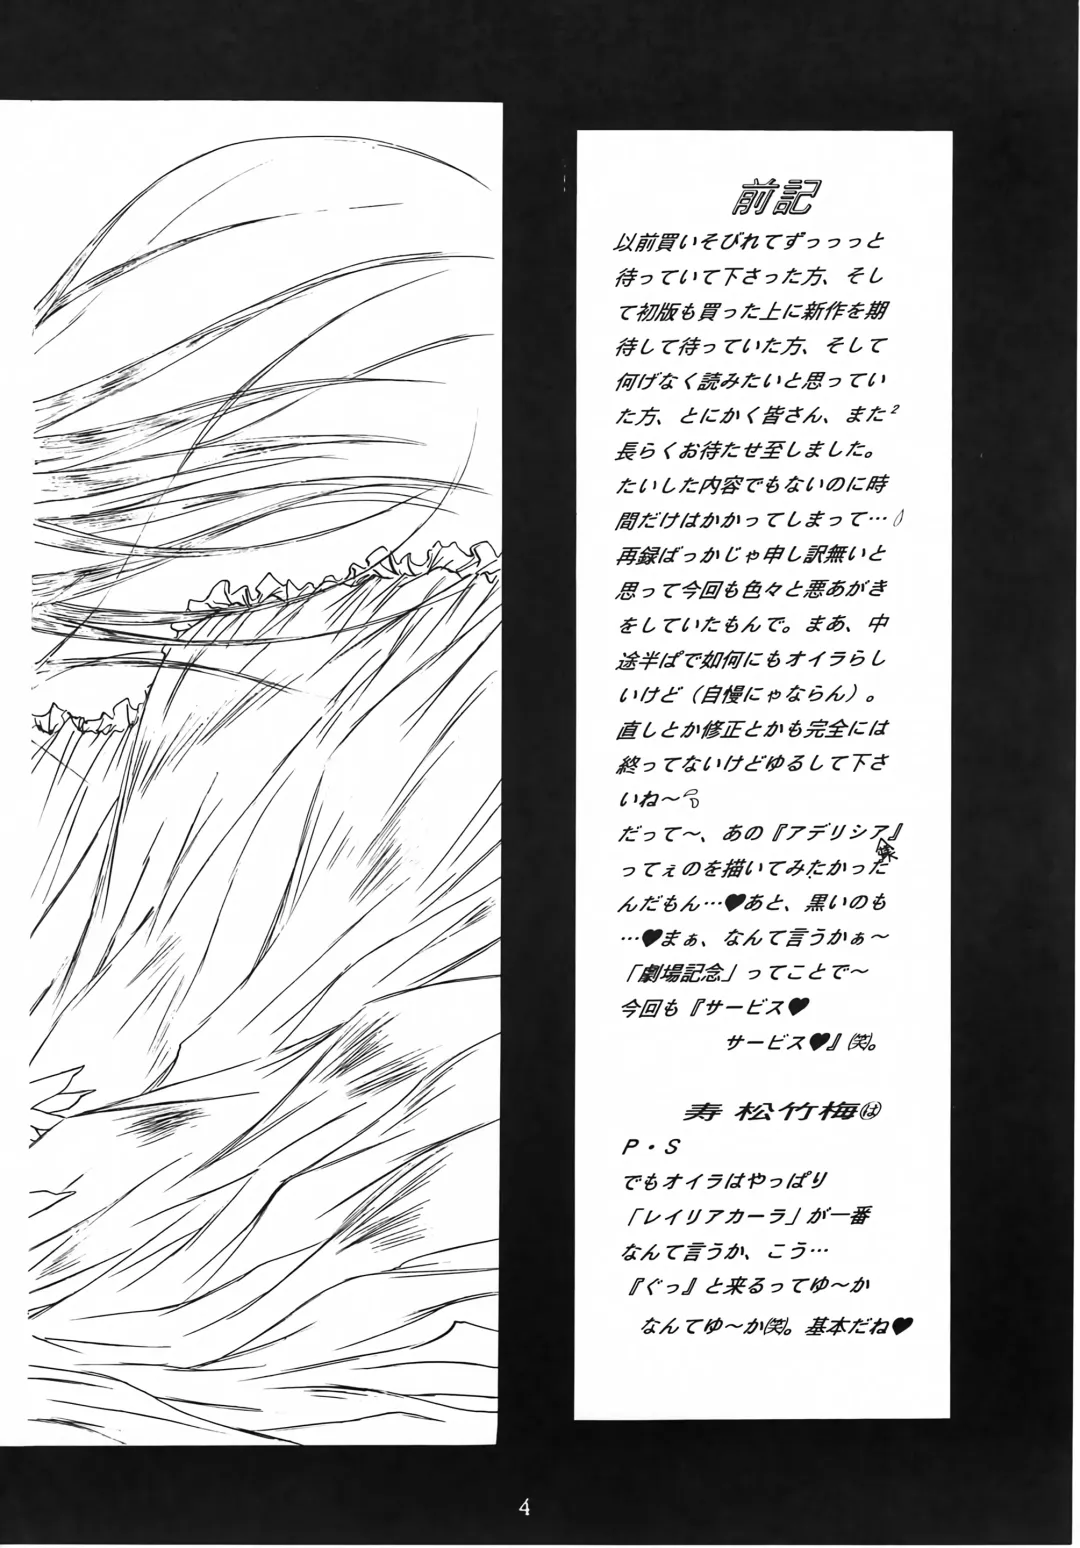 前記
以前買いそびれてずっっっと
待っていて下さった方、そし
て初版も買った上に新作を期
待して待っていた方、そして
何げなく読みたいと思ってい
た方、とにかく皆さん、また²
長らくお待たせ至しました。
たいした内容でもないのに時
間だけはかかってしまって…
再録ばっかじゃ申し訳無いと
思って今回も色々と悪あがき
をしていたもんで。まあ、中
途半ぱで如何にもオイラらし
いけど（自慢にゃならん）。
直しとか修正とかも完全には
終ってないけどゆるして下さ
いね〜
だって〜、あの『アデリシア』
ってぇのを描いてみたかった
んだもん…♥あと、黒いのも
…♥まぁ、なんて言うかぁ〜
「劇場記念」ってことで〜
今回も『サービス♥
サービス♥』㈸。
寿 松竹梅㋩
P・S
でもオイラはやっぱり
「レイリアカーラ」が一番
なんて言うか、こう…
『ぐっ』と来るってゆ〜か
なんてゆ〜か(笑)。基本だね♥
4